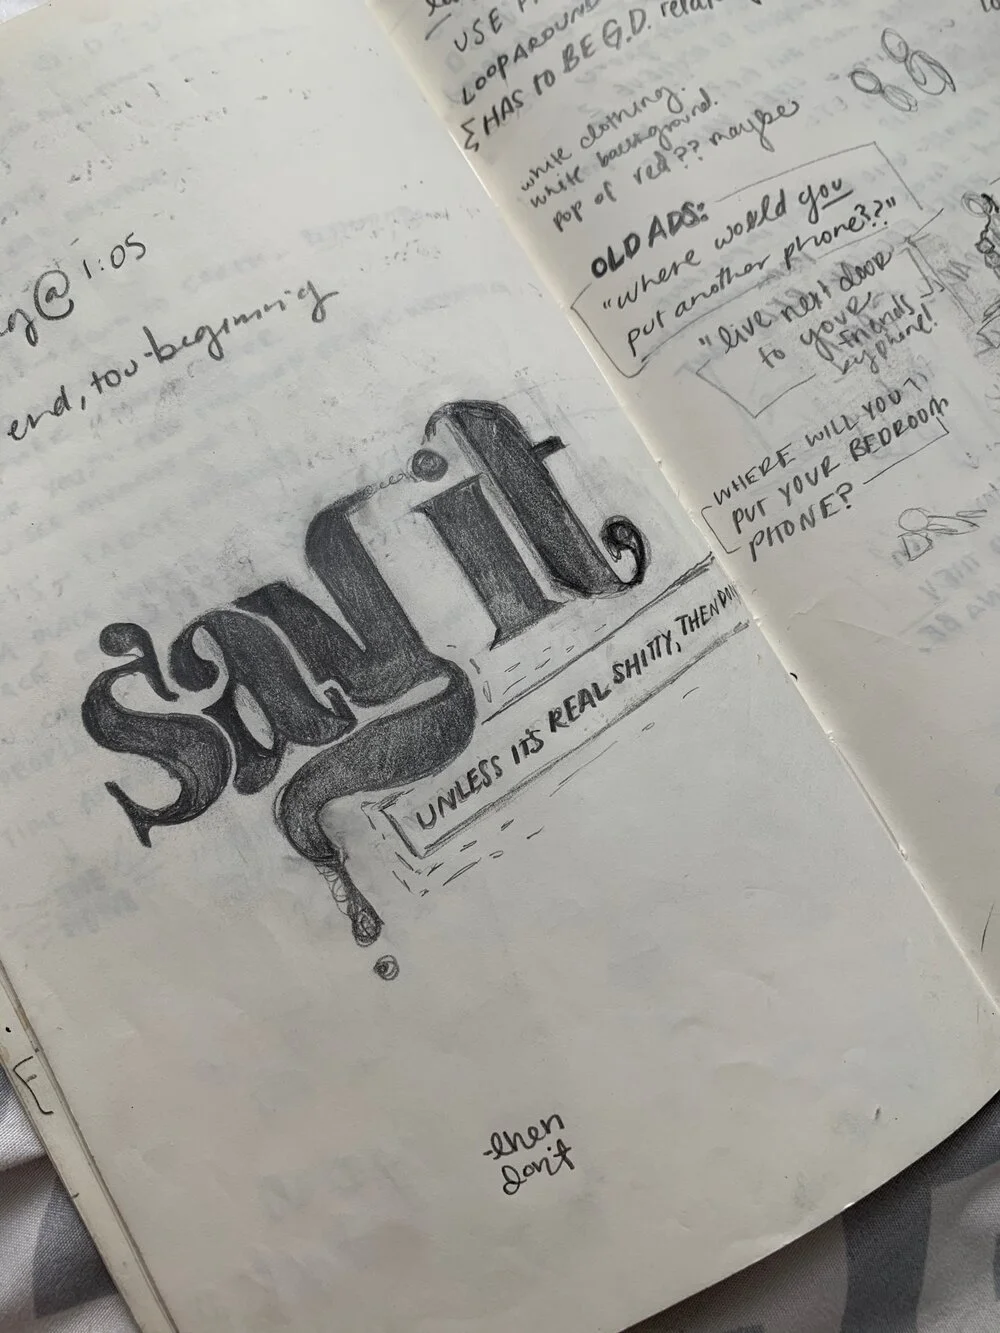 @ 1:05
end, too-beginning
say it
UNLESS IT'S REAL SHITTY, THEN DON
then
don't
USE
LOOPAROUND
HAS TO BE G.D.
white clothing.
white background.
pop of red?? maybe
OLD ADS:
"where would you
put another phone??"
"live next door
to your
friends
by phone!
WHERE WILL YOU
PUT YOUR BEDROOM
PHONE?